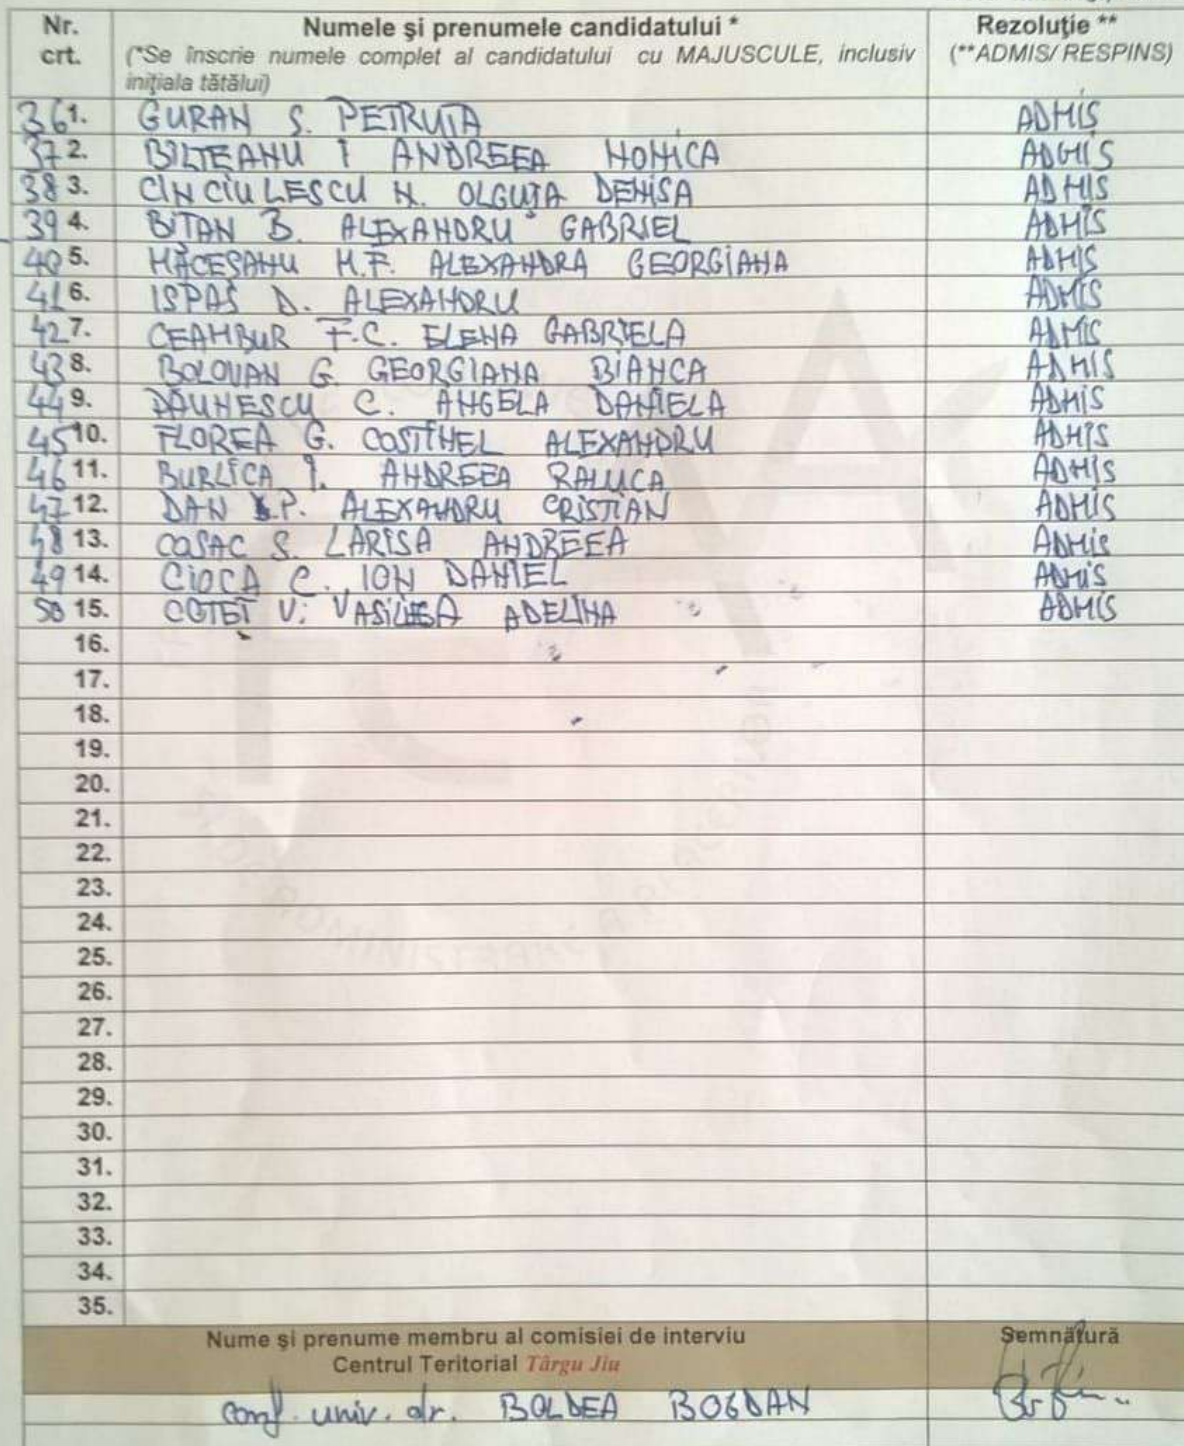 Nr. crt.
Numele și prenumele candidatului *
(*Se înscrie numele complet al candidatului cu MAJUSCULE, inclusiv
inițiala tătălui)
Rezoluție **
(**ADMIS/ RESPINS)
36 1. GURAN S. PETRUȚA ADMIS
37 2. BILTEANU I ANDREEA MONICA ADMIS
38 3. CINCIULESCU N. OLGUȚA DENISA ADMIS
39 4. BITAN B. ALEXANDRU GABRIEL ADMIS
40 5. MĂCEȘANU M.F. ALEXANDRA GEORGIANA ADMIS
41 6. ISPAS D. ALEXANDRU ADMIS
42 7. CEAMBUR F.C. ELENA GABRIELA ADMIS
43 8. BOLOVAN G. GEORGIANA BIANCA ADMIS
44 9. DĂUNESCU C. ANGELA DANIELA ADMIS
45 10. FLOREA G. COSTINEL ALEXANDRU ADMIS
46 11. BURLICA I. ANDREEA RALUCA ADMIS
47 12. DAN P. ALEXANDRU CRISTIAN ADMIS
48 13. COSAC S. LARISA ANDREEA ADMIS
49 14. CIOCA C. ION DANIEL ADMIS
50 15. COTET V. ADELINA ADMIS
16.
17.
18.
19.
20.
21.
22.
23.
24.
25.
26.
27.
28.
29.
30.
31.
32.
33.
34.
35.
Nume și prenume membru al comisiei de interviu
Centrul Teritorial Târgu Jiu
Semnătură
conf. univ. dr. BOLDEA BOGDAN